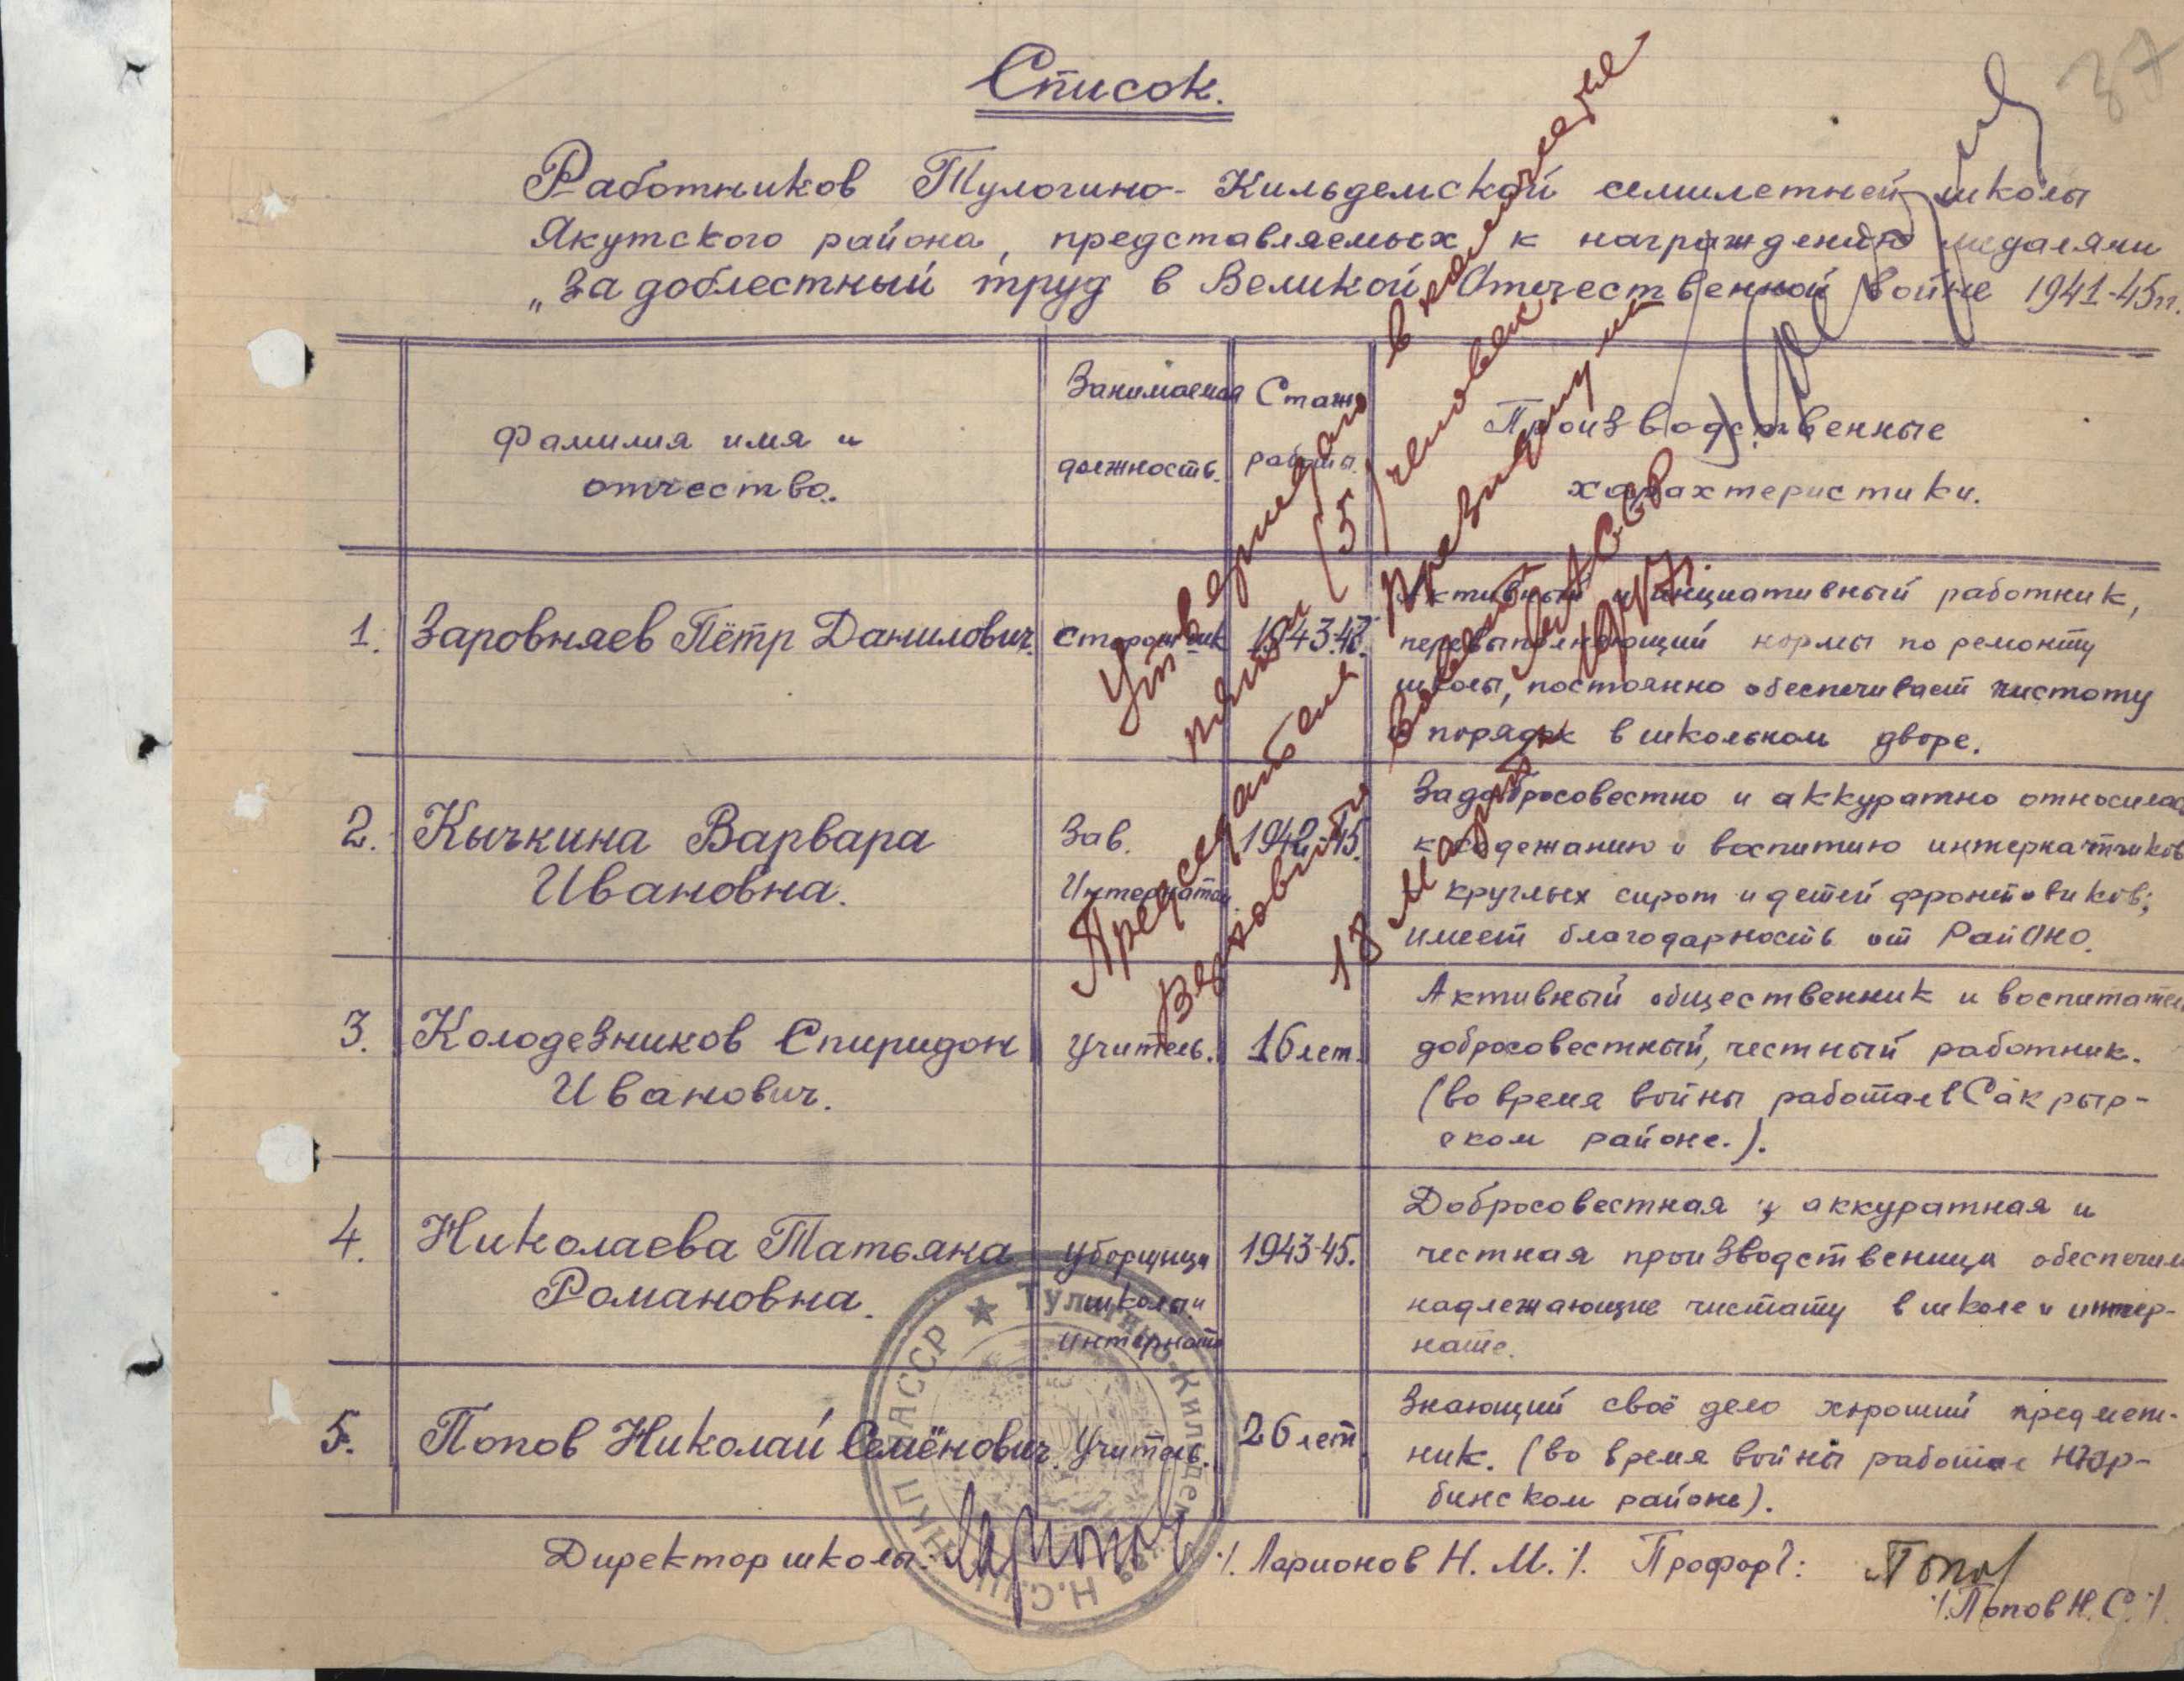 37
Список.
Работников Тулогино-Кильдемской семилетней школы
Якутского района, представляемых к награждению медалями
„За доблестный труд в Великой Отечественной войне 1941-45гг.
Фамилия имя и
отчество.
Занимаемая
должность.
Стаж
работы.
Производственные
характеристики.
1. Заровняев Пётр Данилович.
1943-45.
Активный и инициативный работник,
перевыполняющий нормы по ремонту
школы, постоянно обеспечивает чистоту
и порядок в школьном дворе.
2. Кычкина Варвара
Ивановна.
Зав.
Интернатом.
1942-45.
Задобросовестно и аккуратно относилась
к содежанию и воспитию интернатников
круглых сирот и детей фронтовиков;
имеет благодарность от РайОНО.
3. Колодезников Спиридон
Иванович.
Учитель.
16 лет.
Активный общественник и воспитатель
добросовестный, честный работник.
(во время войны работал в Саккрыр-
ском районе.).
4. Николаева Татьяна
Романовна.
Уборщица
школы и
интерната
1943-45.
Добросовестная и аккуратная и
честная производственница обеспечила
надлежающие чистату в школе и интер-
нате.
5. Попов Николай Семёнович.
Учитель.
26 лет
Знающий своё дело хороший предмет-
ник. (во время войны работал Нюр-
бинском районе).
Утверждаю в количестве
пяти (5) человек
Председатель Президиума
Верховного Совета ЯАССР
18 марта 1947г.
Директор школы: Ларионов /. Ларионов Н. М. /. Профорг: Попов
/. Попов Н. С. /.
★ Тулагино-Кильдемская Н.С.Ш. НКП ЯАССР